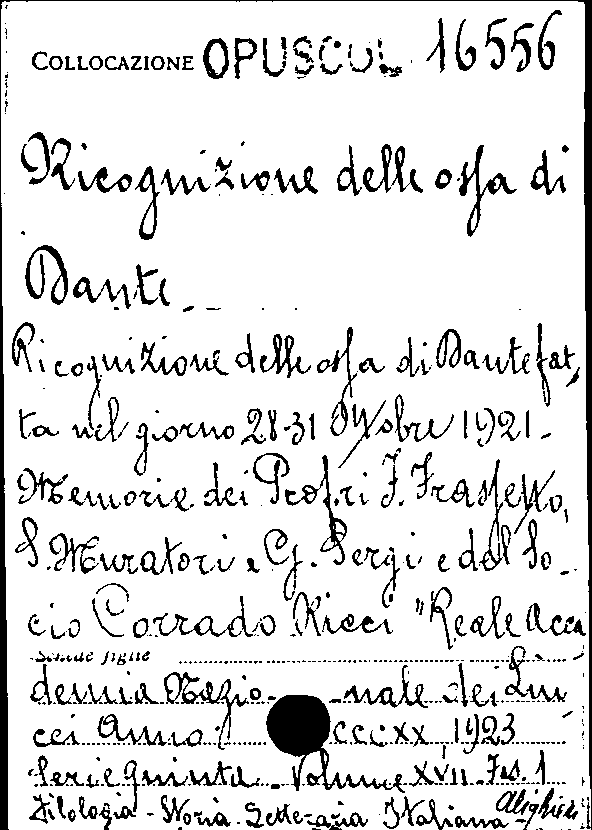 COLLOCAZIONE OPUSCUL 16556
Ricognizione delle ossa di
Dante
Ricognizione delle ossa di Dante fat,
ta nel giorno 28-31 Ottobre 1921-
Memorie dei Prof.ri F. Frassetto,
S. Muratori e G. Sergi e del So-
cio Corrado Ricci "Reale Acca
Schede figlie
demia Nazio- nale dei Lin
cei Anno cccxx, 1923
Serie Quinta. Volume XVII - Fas. 1
Filologia - Storia - Letteraria Italiana - Alighieri